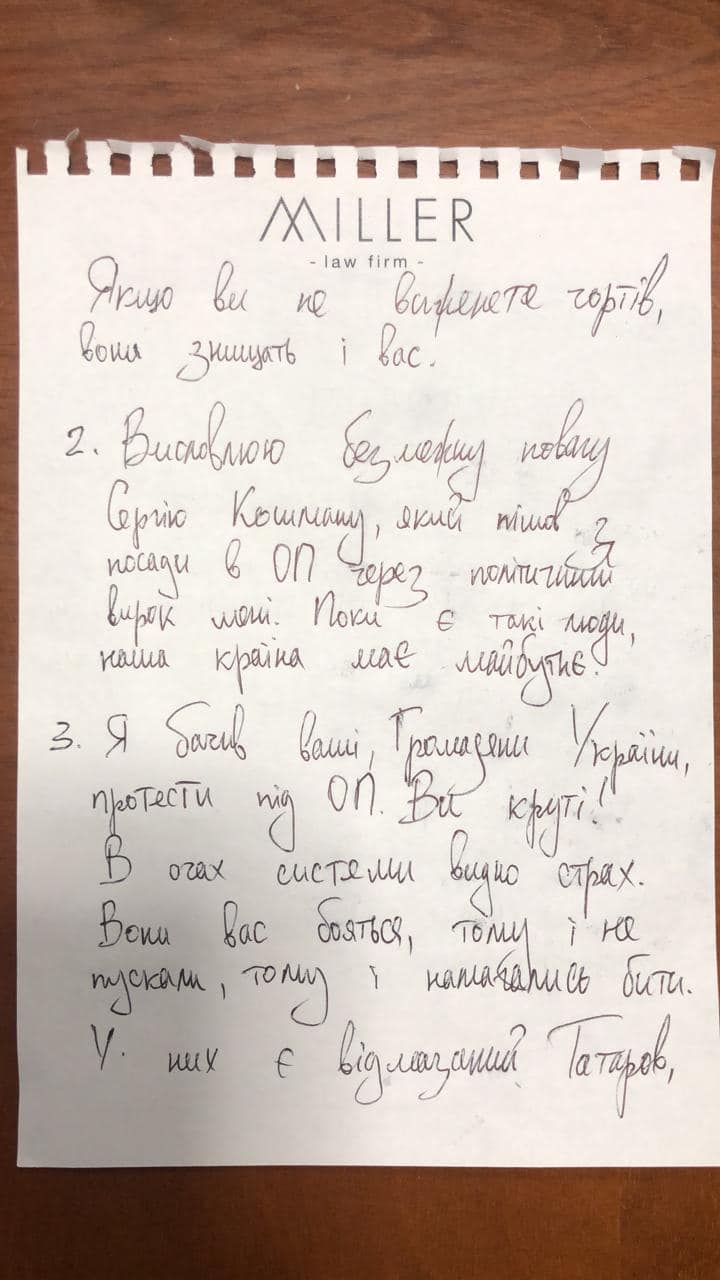 MILLER
- law firm -
Якщо ви не виженете чортів,
вони знищать і вас.
2. Висловлюю безмежну повагу
Сергію Кошману, який пішов з
посади в ОП через політичний
вирок мені. Поки є такі люди,
наша країна має майбутнє.
3. Я бачив ваші, Громадяни України,
протести під ОП. Ви круті!
В очах системи видно страх.
Вони вас бояться, тому і не
пускали, тому і намагались бити.
У них є відмазаний Татаров,